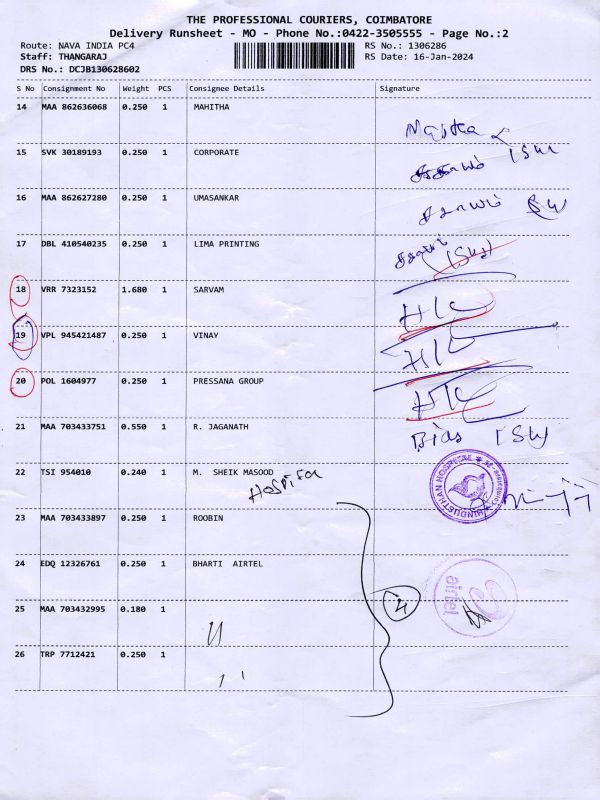 THE PROFESSIONAL COURIERS, COIMBATORE
Delivery Runsheet - MO - Phone No.:0422-3505555 - Page No.:2
Route: NAVA INDIA PC4 RS No.: 1306286
Staff: THANGARAJ RS Date: 16-Jan-2024
DRS No.: DCJB130628602
S No Consignment No Weight PCS Consignee Details Signature
14 MAA 862636068 0.250 1 MAHITHA
15 SVK 30189193 0.250 1 CORPORATE
16 MAA 862627280 0.250 1 UMASANKAR
17 DBL 410540235 0.250 1 LIMA PRINTING
18 VRR 7323152 1.680 1 SARVAM
19 VPL 945421487 0.250 1 VINAY
20 POL 1604977 0.250 1 PRESSANA GROUP
21 MAA 703433751 0.550 1 R. JAGANATH
22 TSI 954010 0.240 1 M. SHEIK MASOOD
Hospital
HINDUSTHAN HOSPITAL
23 MAA 703433897 0.250 1 ROOBIN
24 EDQ 12326761 0.250 1 BHARTI AIRTEL
airtel
25 MAA 703432995 0.180 1
4
26 TRP 7712421 0.250 1